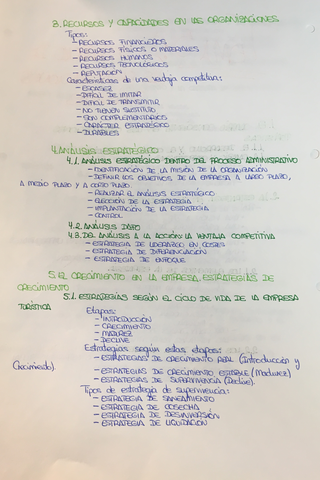 3. RECURSOS Y CAPACIDADES EN LAS ORGANIZACIONES
Tipos:
- RECURSOS FINANCIEROS
- RECURSOS FÍSICOS O MATERIALES
- RECURSOS HUMANOS
- RECURSOS TECNOLÓGICOS
- REPUTACIÓN
Características de una ventaja competitiva:
- ESCASEZ
- DIFÍCIL DE IMITAR
- DIFÍCIL DE TRANSMITIR
- NO TIENEN SUSTITUTO
- SON COMPLEMENTARIOS
- CARÁCTER ESTRATÉGICO
- DURABLES
4. ANÁLISIS ESTRATÉGICO
4.1. ANÁLISIS ESTRATÉGICO DENTRO DEL PROCESO ADMINISTRATIVO
- IDENTIFICACIÓN DE LA MISIÓN DE LA ORGANIZACIÓN
- DEFINIR LOS OBJETIVOS DE LA EMPRESA A LARGO PLAZO,
A MEDIO PLAZO Y A CORTO PLAZO.
- REALIZAR EL ANÁLISIS ESTRATÉGICO
- ELECCIÓN DE LA ESTRATEGIA
- IMPLANTACIÓN DE LA ESTRATEGIA
- CONTROL
4.2. ANÁLISIS DAFO
4.3. DEL ANÁLISIS A LA ACCIÓN: LA VENTAJA COMPETITIVA
- ESTRATEGIA DE LIDERAZGO EN COSTES
- ESTRATEGIA DE DIFERENCIACIÓN
- ESTRATEGIA DE ENFOQUE
5. EL CRECIMIENTO EN LA EMPRESA, ESTRATEGIAS DE
CRECIMIENTO
5.1. ESTRATEGIAS SEGÚN EL CICLO DE VIDA DE LA EMPRESA
TURÍSTICA
Etapas:
- INTRODUCCIÓN
- CRECIMIENTO
- MADUREZ
- DECLIVE
Estrategias según estas etapas:
- ESTRATEGIAS DE CRECIMIENTO REAL (Introducción y
Crecimiento).
- ESTRATEGIAS DE CRECIMIENTO ESTABLE (Madurez)
- ESTRATEGIAS DE SUPERVIVENCIA (Declive).
Tipos de estrategia de supervivencia:
- ESTRATEGIA DE SANEAMIENTO
- ESTRATEGIA DE COSECHA
- ESTRATEGIA DE DESINVERSIÓN
- ESTRATEGIA DE LIQUIDACIÓN